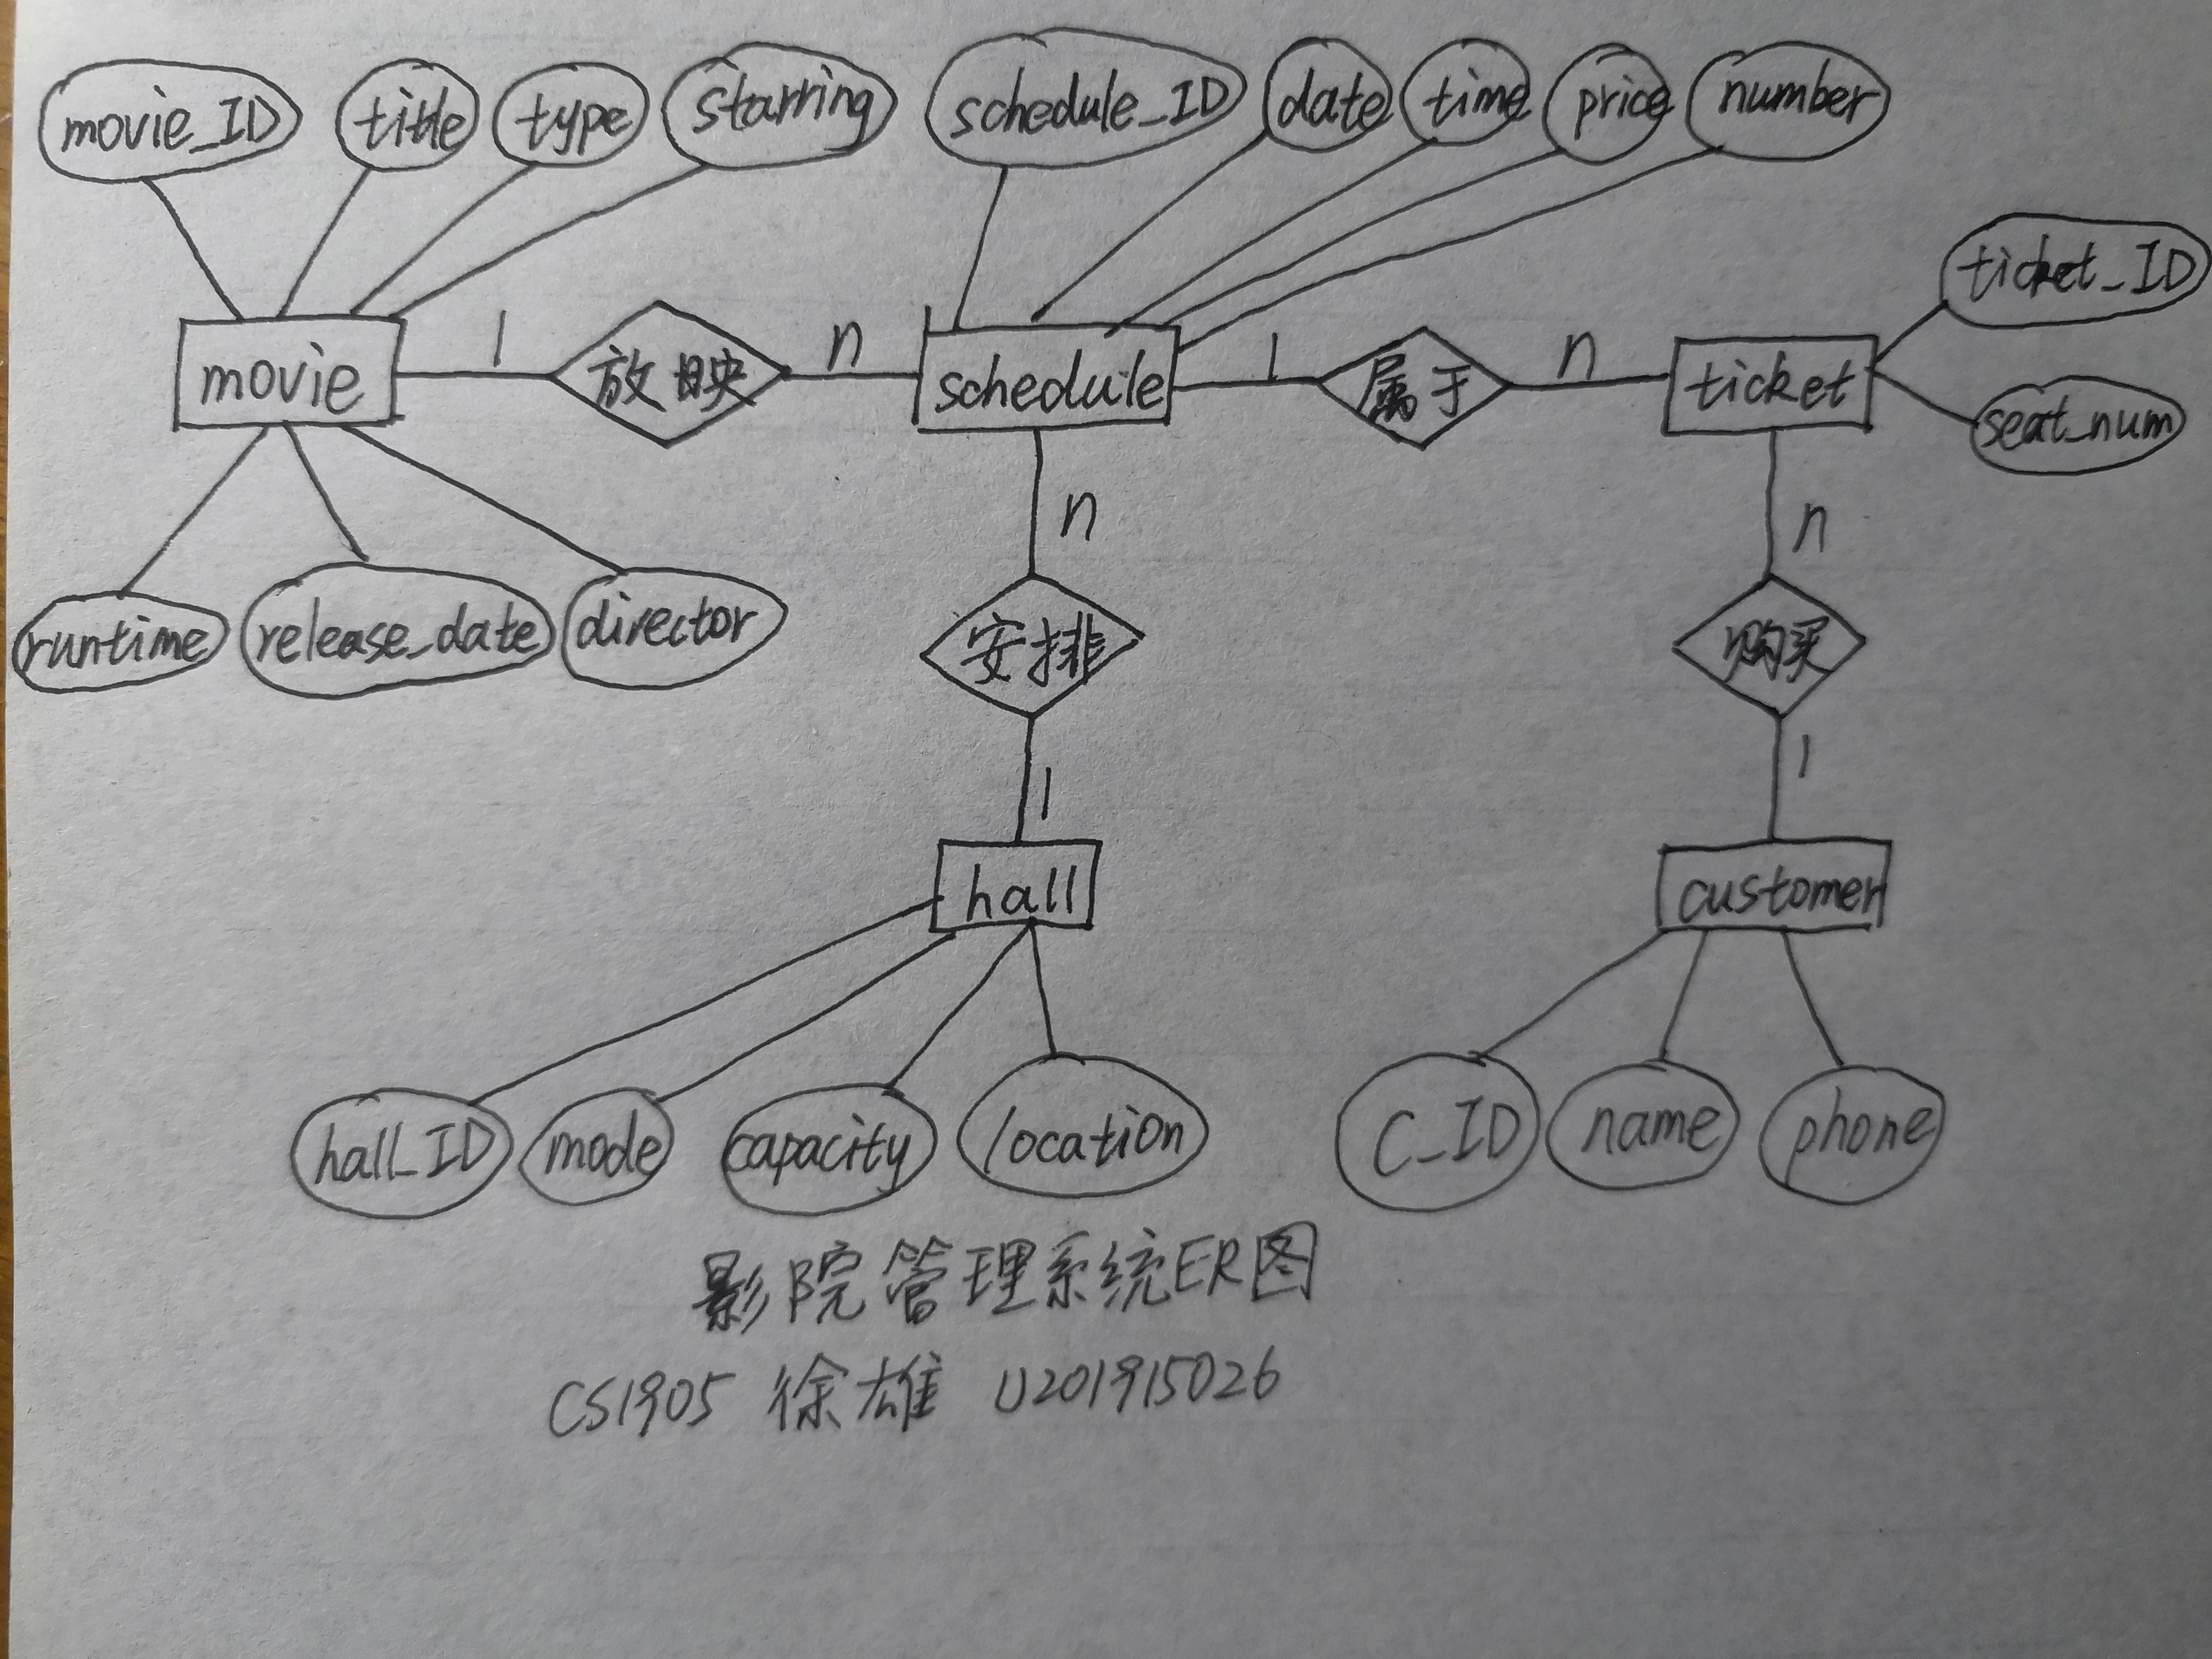 movie_ID title type starring schedule_ID date time price number
ticket_ID
movie 1 放映 n schedule 1 属于 n ticket
seat_num
n n
runtime release_date director 安排 购买
1 1
hall customer
hall_ID mode capacity location C_ID name phone
影院管理系统ER图
CS1905 徐雄 U201915026